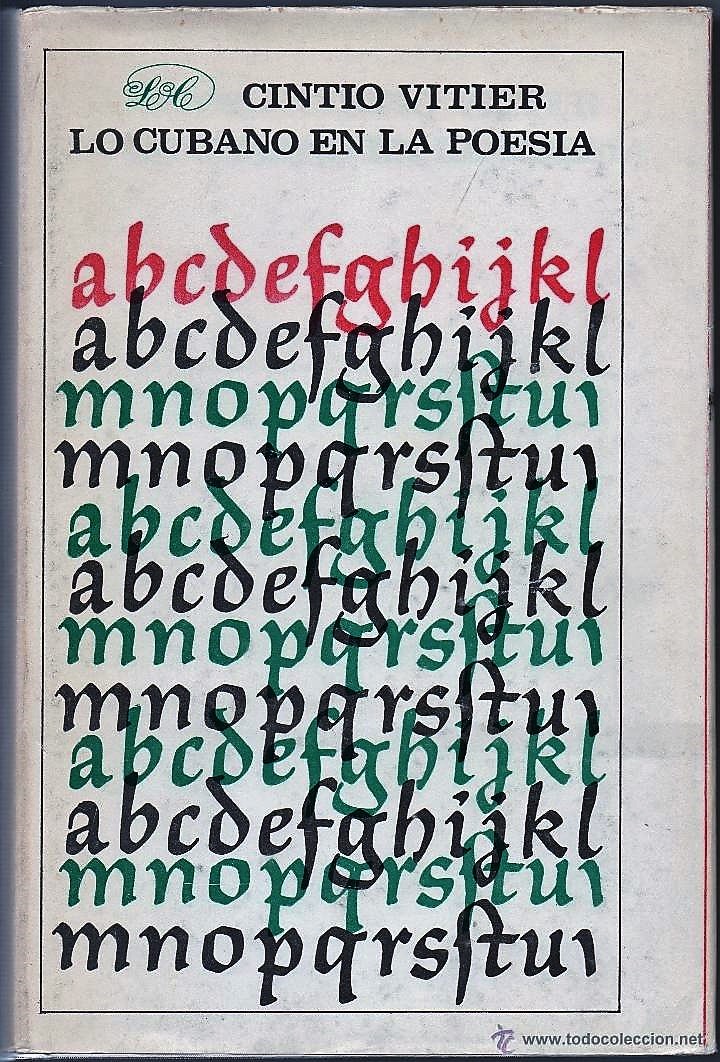 LC CINTIO VITIER
LO CUBANO EN LA POESIA
abcdefghijkl
abcdefghijkl
mnopqrsſtuı
mnopqrsſtuı
abcdefghijkl
abcdefghijkl
mnopqrsſtuı
mnopqrsſtuı
abcdefghijkl
abcdefghijkl
mnopqrsſtuı
mnopqrsſtuı
www.todocoleccion.net